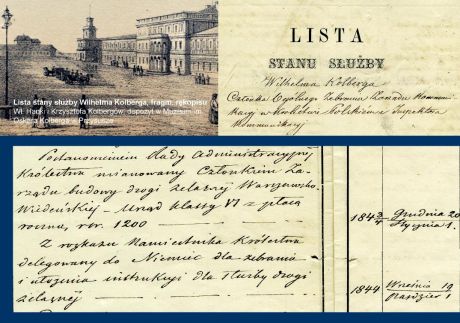 Lista stany służby Wilhelma Kolberga, fragm. rękopisu
Wł. Hanki i Krzysztofa Kolbergów, depozyt w Muzeum im.
Oskara Kolberga w Przysusze
LISTA
STANU SŁUŻBY
Wilhelma Kolberga
Członka Ogólnego Zebrania Zarządu Kommu-
nikacyi w Królestwie Polskiem Inspektora
Kommunikacyi
Postanowieniem Rady Administracyjnej
Królestwa mianowany Członkiem Za-
rządu budowy drogi żelaznej Warszawsko-
Wiedeńskiej – Urząd klassy VI z płacą
roczną, rsr. 1200
184 3/4 Grudnia 20
Stycznia 1.
Z rozkazu Namiestnika Królestwa
delegowany do Niemiec dla zebrania
i ułożenia instrukcyi dla służby drogi
żelaznej
1844 Września 19
Paździer 1